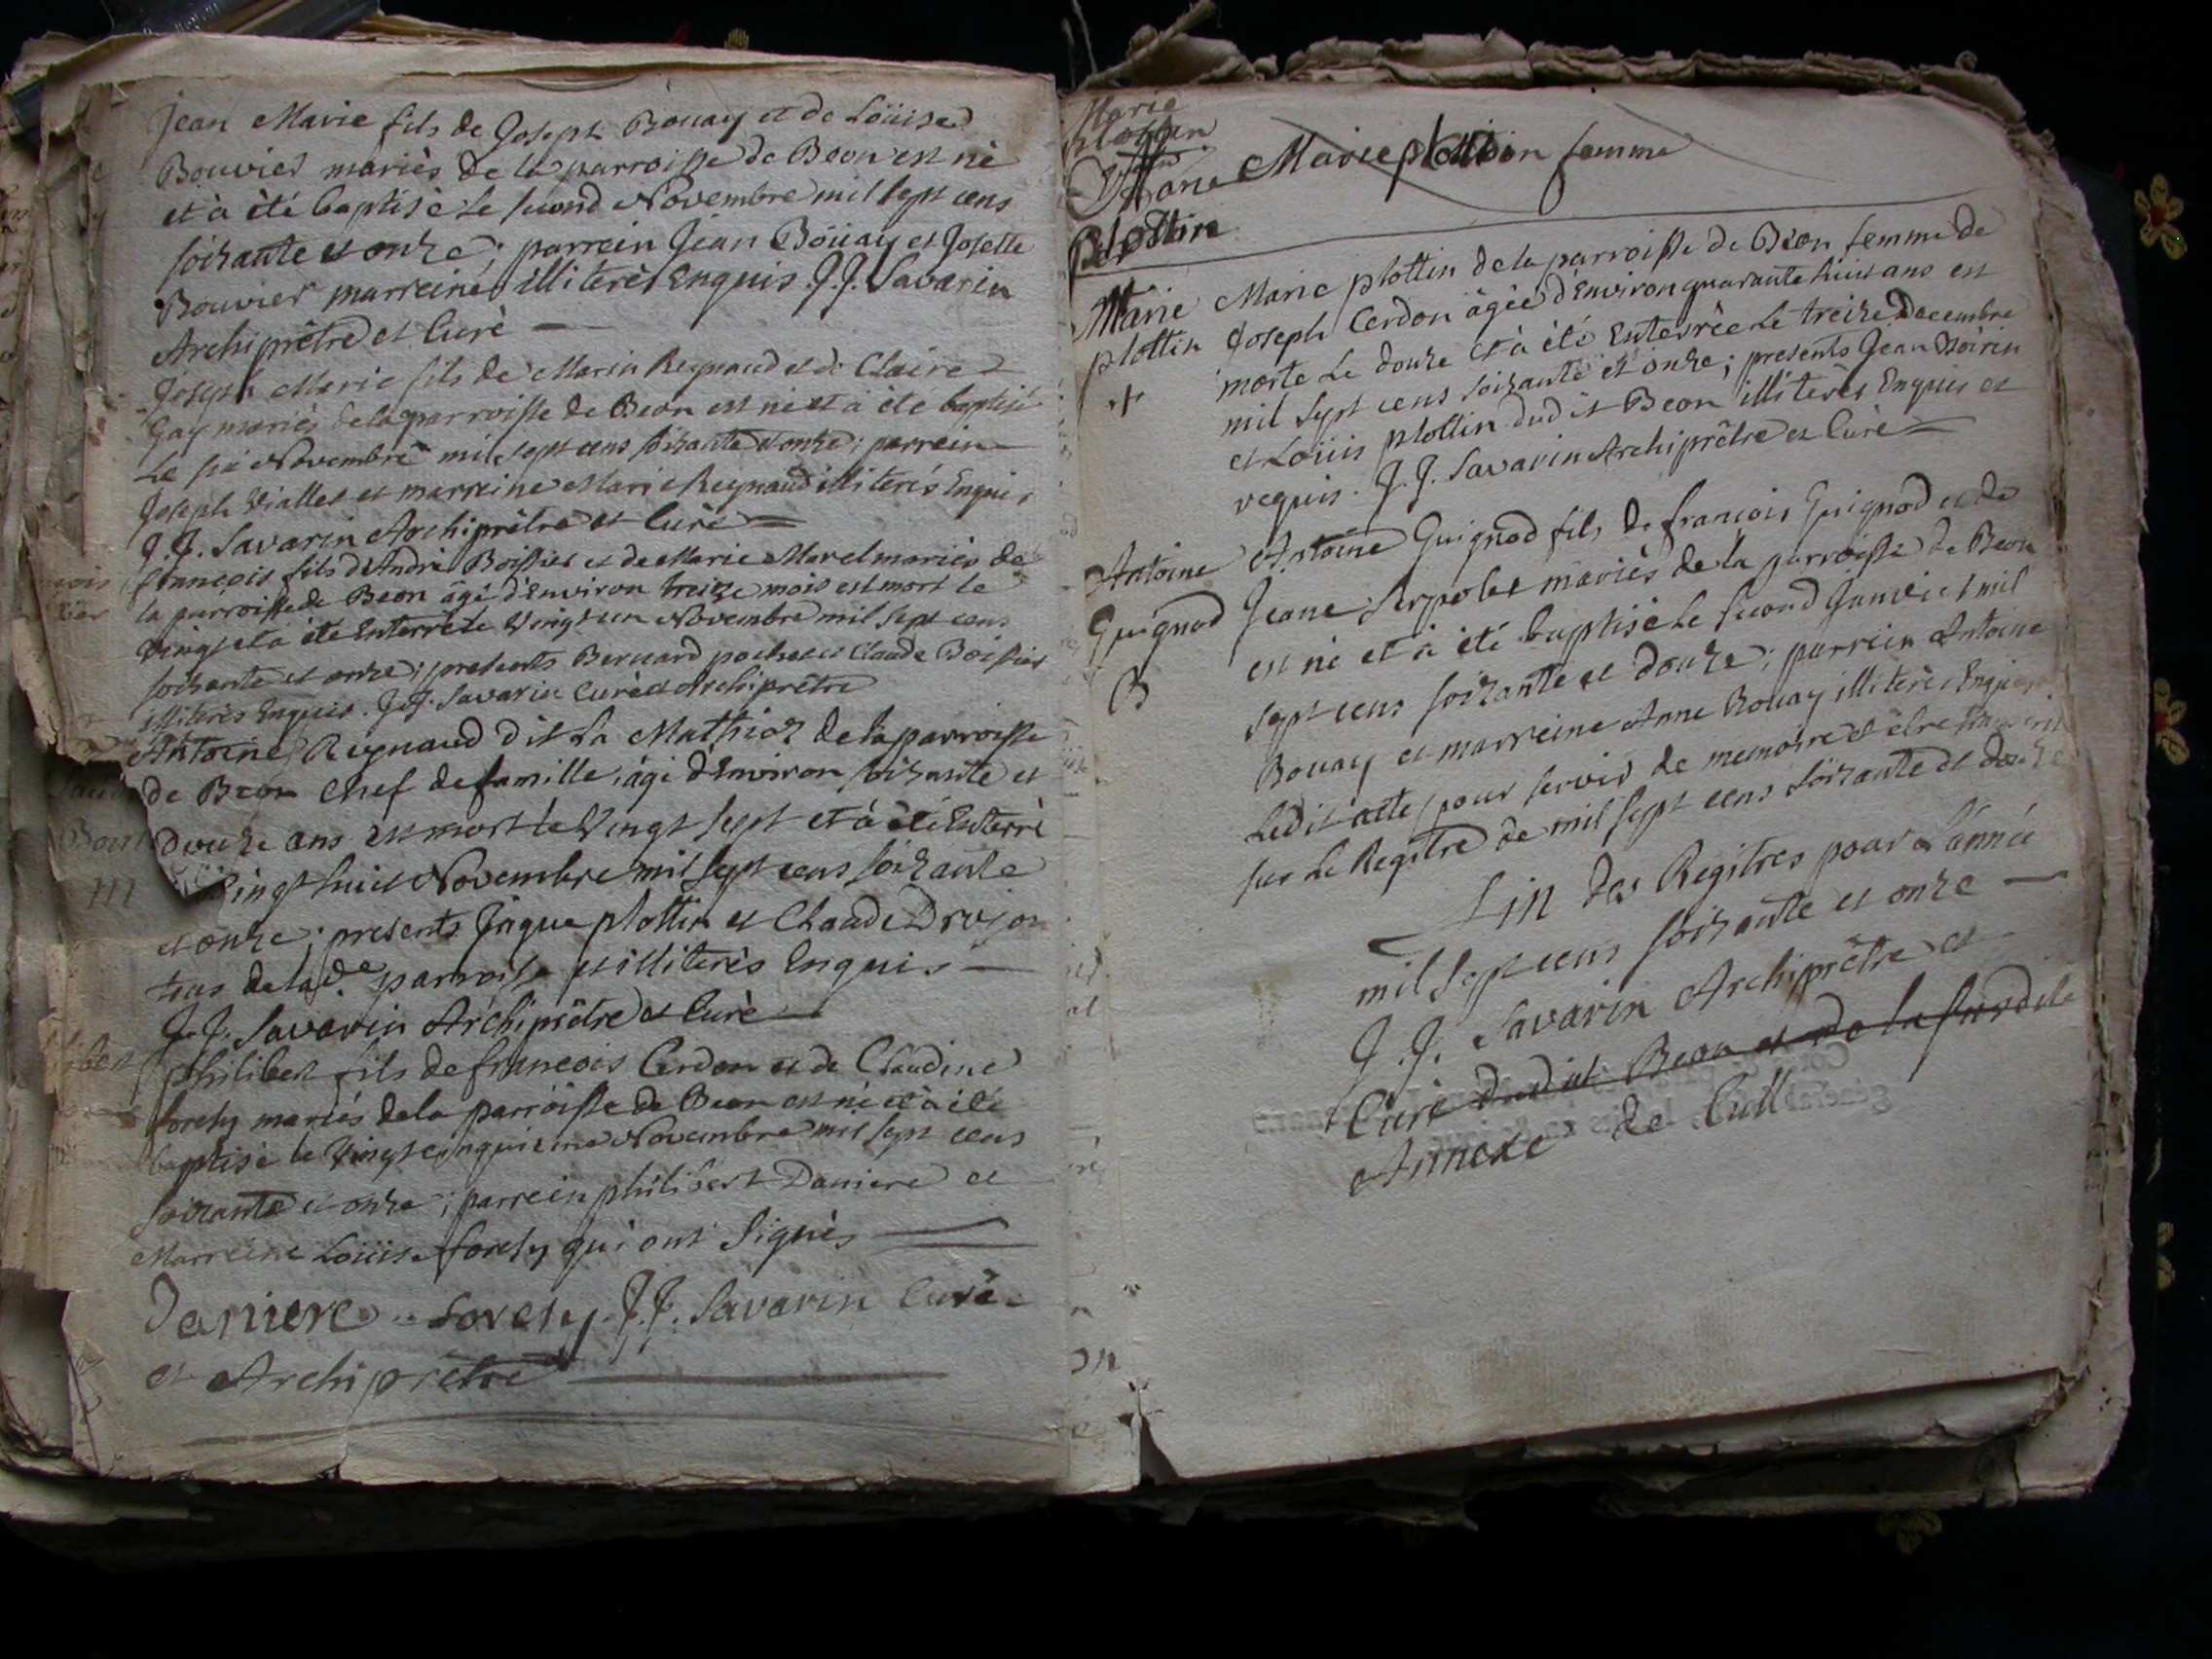 Jean Marie fils de Joseph Boüay et de Loüise
Bouvier mariès de la parroisse de Beon est nè
et à èté baptisè Le second Novembre mil sept cens
soixante et onze; parrein Jean Boüay et Josette
Bouvier marreine illiterès Enquis. J.J. Savarin
Archiprêtre et Curè
Joseph Marie fils de Marin Reynaud et de Claire
Gay mariès de la parroisse de Beon est nè et à ètè baptisè
Le Novembre mil sept cens soixante et onze; parrein
Joseph Viallet et marreine Marie Reynaud illiterès Enquis
J.J. Savarin Archiprêtre et Curè
françois fils d'Andrè Boissier et de Marie Marel mariès de
la parroisse de Beon âgè d'Environ treize mois est mort le
vingt et à ètè Enterrè le Vingt un Novembre mil sept cens
soixante et onze; presents Bernard et Claude Boissier
illiterès Enquis. J.J. Savarin Curè et Archiprêtre
Antoine Reynaud dit La Mathioz de la parroisse
de Beon Chef de famille, âgè d'Environ soixante et
douze ans est mort le Vingt sept et à ètè Enterrè
Vingt huit Novembre mil sept cens soixante
et onze; presents Jaque plottin et Claude Drujon
tous de la de parroisse et illiterès Enquis
J.J. Savarin Archiprêtre et Curè
philibert fils de françois Cerdon et de Claudine
sorety mariès de la parroisse de Beon est nè et à ètè
baptisè le Vingt cinquieme Novembre mil sept cens
soixante et onze; parrein philibert Daniere et
Marreine Loüise sorety qui ont Signès
Daniere Sorety. J.J. Savarin Curè
et Archiprêtre
Marie
plottin
Plottin
Marie plottin femme
Marie
plottin
Marie plottin de la parroisse de Beon femme de
Joseph Cerdon âgèe d'Environ quarante huit ans est
morte Le douze et à ètè Enterrèe Le treize Decembre
mil sept cens soixante et onze; presents Jean
et Loüis plottin dudit Beon illiterès Enquis et
requis. J.J. Savarin Archiprêtre et Curè
Antoine
Guignod
B
Antoine Guignod fils de françois Guignod et de
Jeane Serpolet mariès de la parroisse de Beon
est nè et à ètè baptisè Le second Janvier mil
sept cens soixante et douze; parrein Antoine
Bouay et marreine Anne Bouay illiterès Enquis
Ledit acte pour servir de memoire et être transcrit
sur Le Regitre de mil sept cens soixante et douze
Fin des Regitres pour L'année
mil sept cens soixante et onze
J.J. Savarin Archiprêtre et
Curè dudit Beon et de la susdite
Annexe de